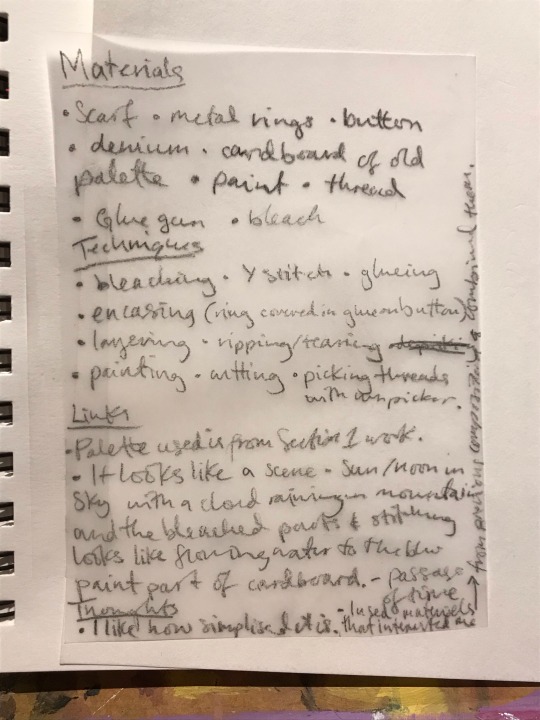 Materials
• Scarf • metal rings • button
• denium • cardboard of old
palette • paint • thread
• Glue gun • bleach
Techniques
• bleaching • Y stitch • glueing
• encasing (ring covered in glue on button)
• layering • ripping/tearing
• painting • cutting • picking threads
with unpicker.
Links
• Palette used is from Section 1 work.
• It looks like a scene - Sun/moon in
Sky with a cloud raining on mountain
and the bleached parts & stitching
looks like flowing water to the blue
paint part of cardboard. - passage
of time
Thoughts
• I like how simplised it is. - I used materials
that interested me
→ from previous & combined them.